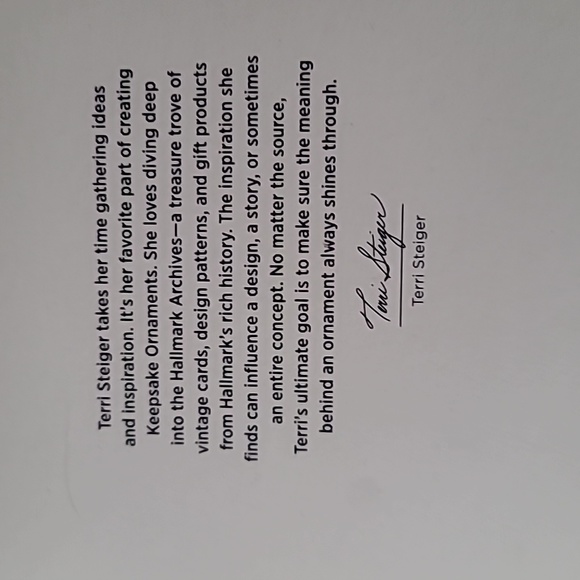 Terri Steiger takes her time gathering ideas
and inspiration. It's her favorite part of creating
Keepsake Ornaments. She loves diving deep
into the Hallmark Archives—a treasure trove of
vintage cards, design patterns, and gift products
from Hallmark's rich history. The inspiration she
finds can influence a design, a story, or sometimes
an entire concept. No matter the source,
Terri's ultimate goal is to make sure the meaning
behind an ornament always shines through.
Terri Steiger
Terri Steiger